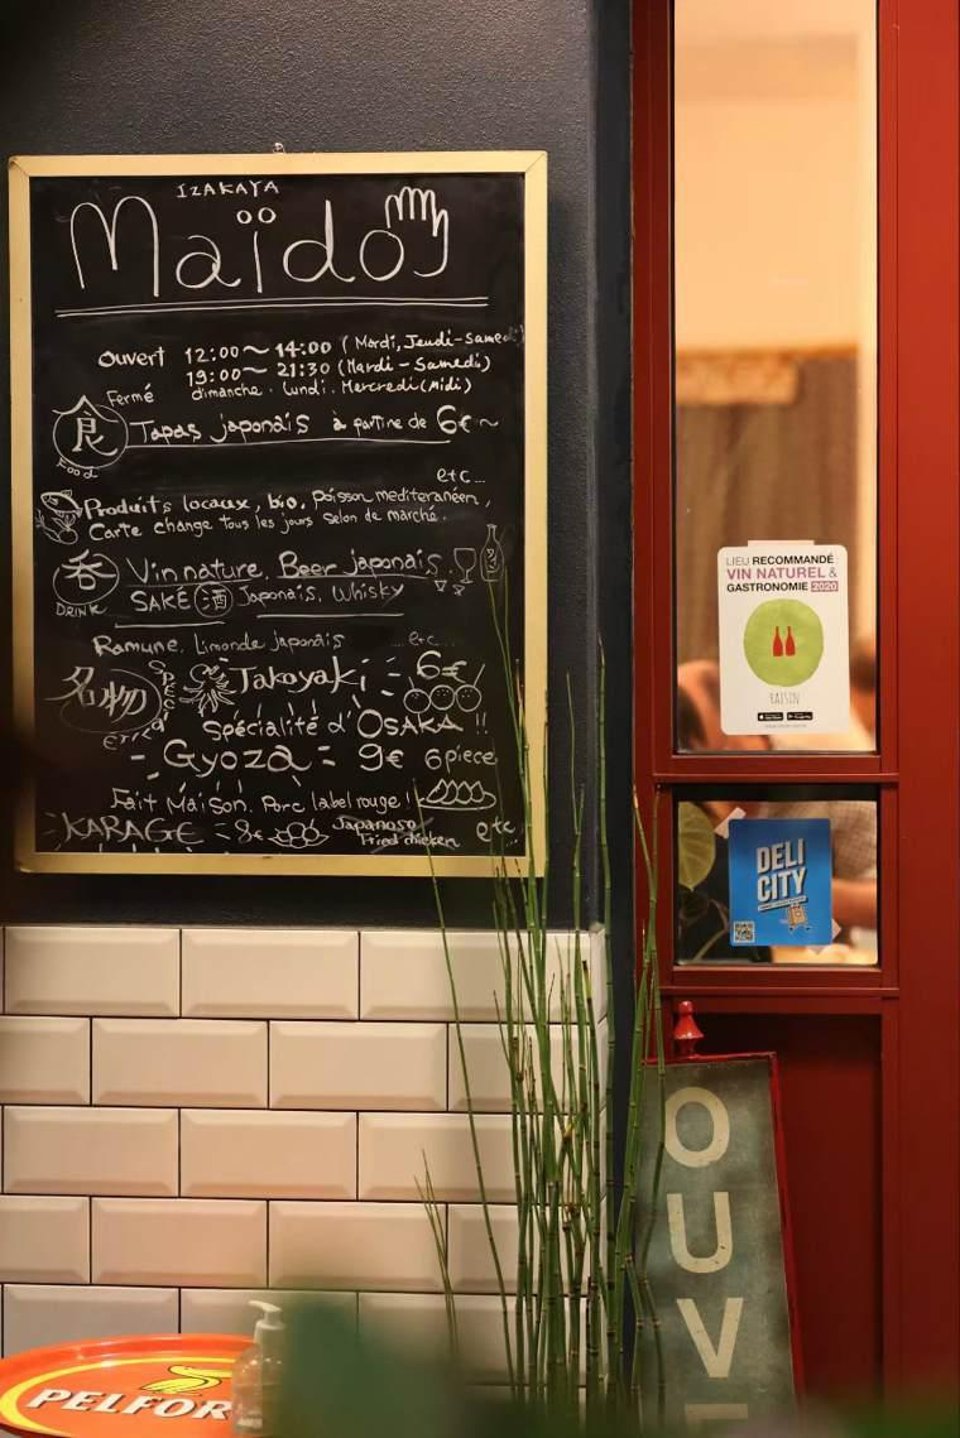 IZAKAYA
Maïdo
Ouvert 12:00～14:00 (Mardi, Jeudi-Samedi)
19:00～21:30 (Mardi-Samedi)
Fermé dimanche. Lundi. Mercredi(Midi)
食 Tapas japonais à partire de 6€～
Food
etc...
Produits locaux, bio, poisson mediteranéen,
Carte change tous les jours selon de marché.
呑 Vin nature, Beer japonais.
DRINK SAKÉ 酒 Japonais, Whisky
Ramune, Limonde japonais ...etc...
名物 Takoyaki - 6€
Spécialité d'OSAKA !!
Gyoza = 9€ 6piece
Fait Maison, Porc label rouge!
KARAGE - 8€ Japanoso Fried chicken etc...
LIEU RECOMMANDÉ
VIN NATUREL &
GASTRONOMIE 2020
RAISIN
DELI
CITY
OUVE
PELFOR